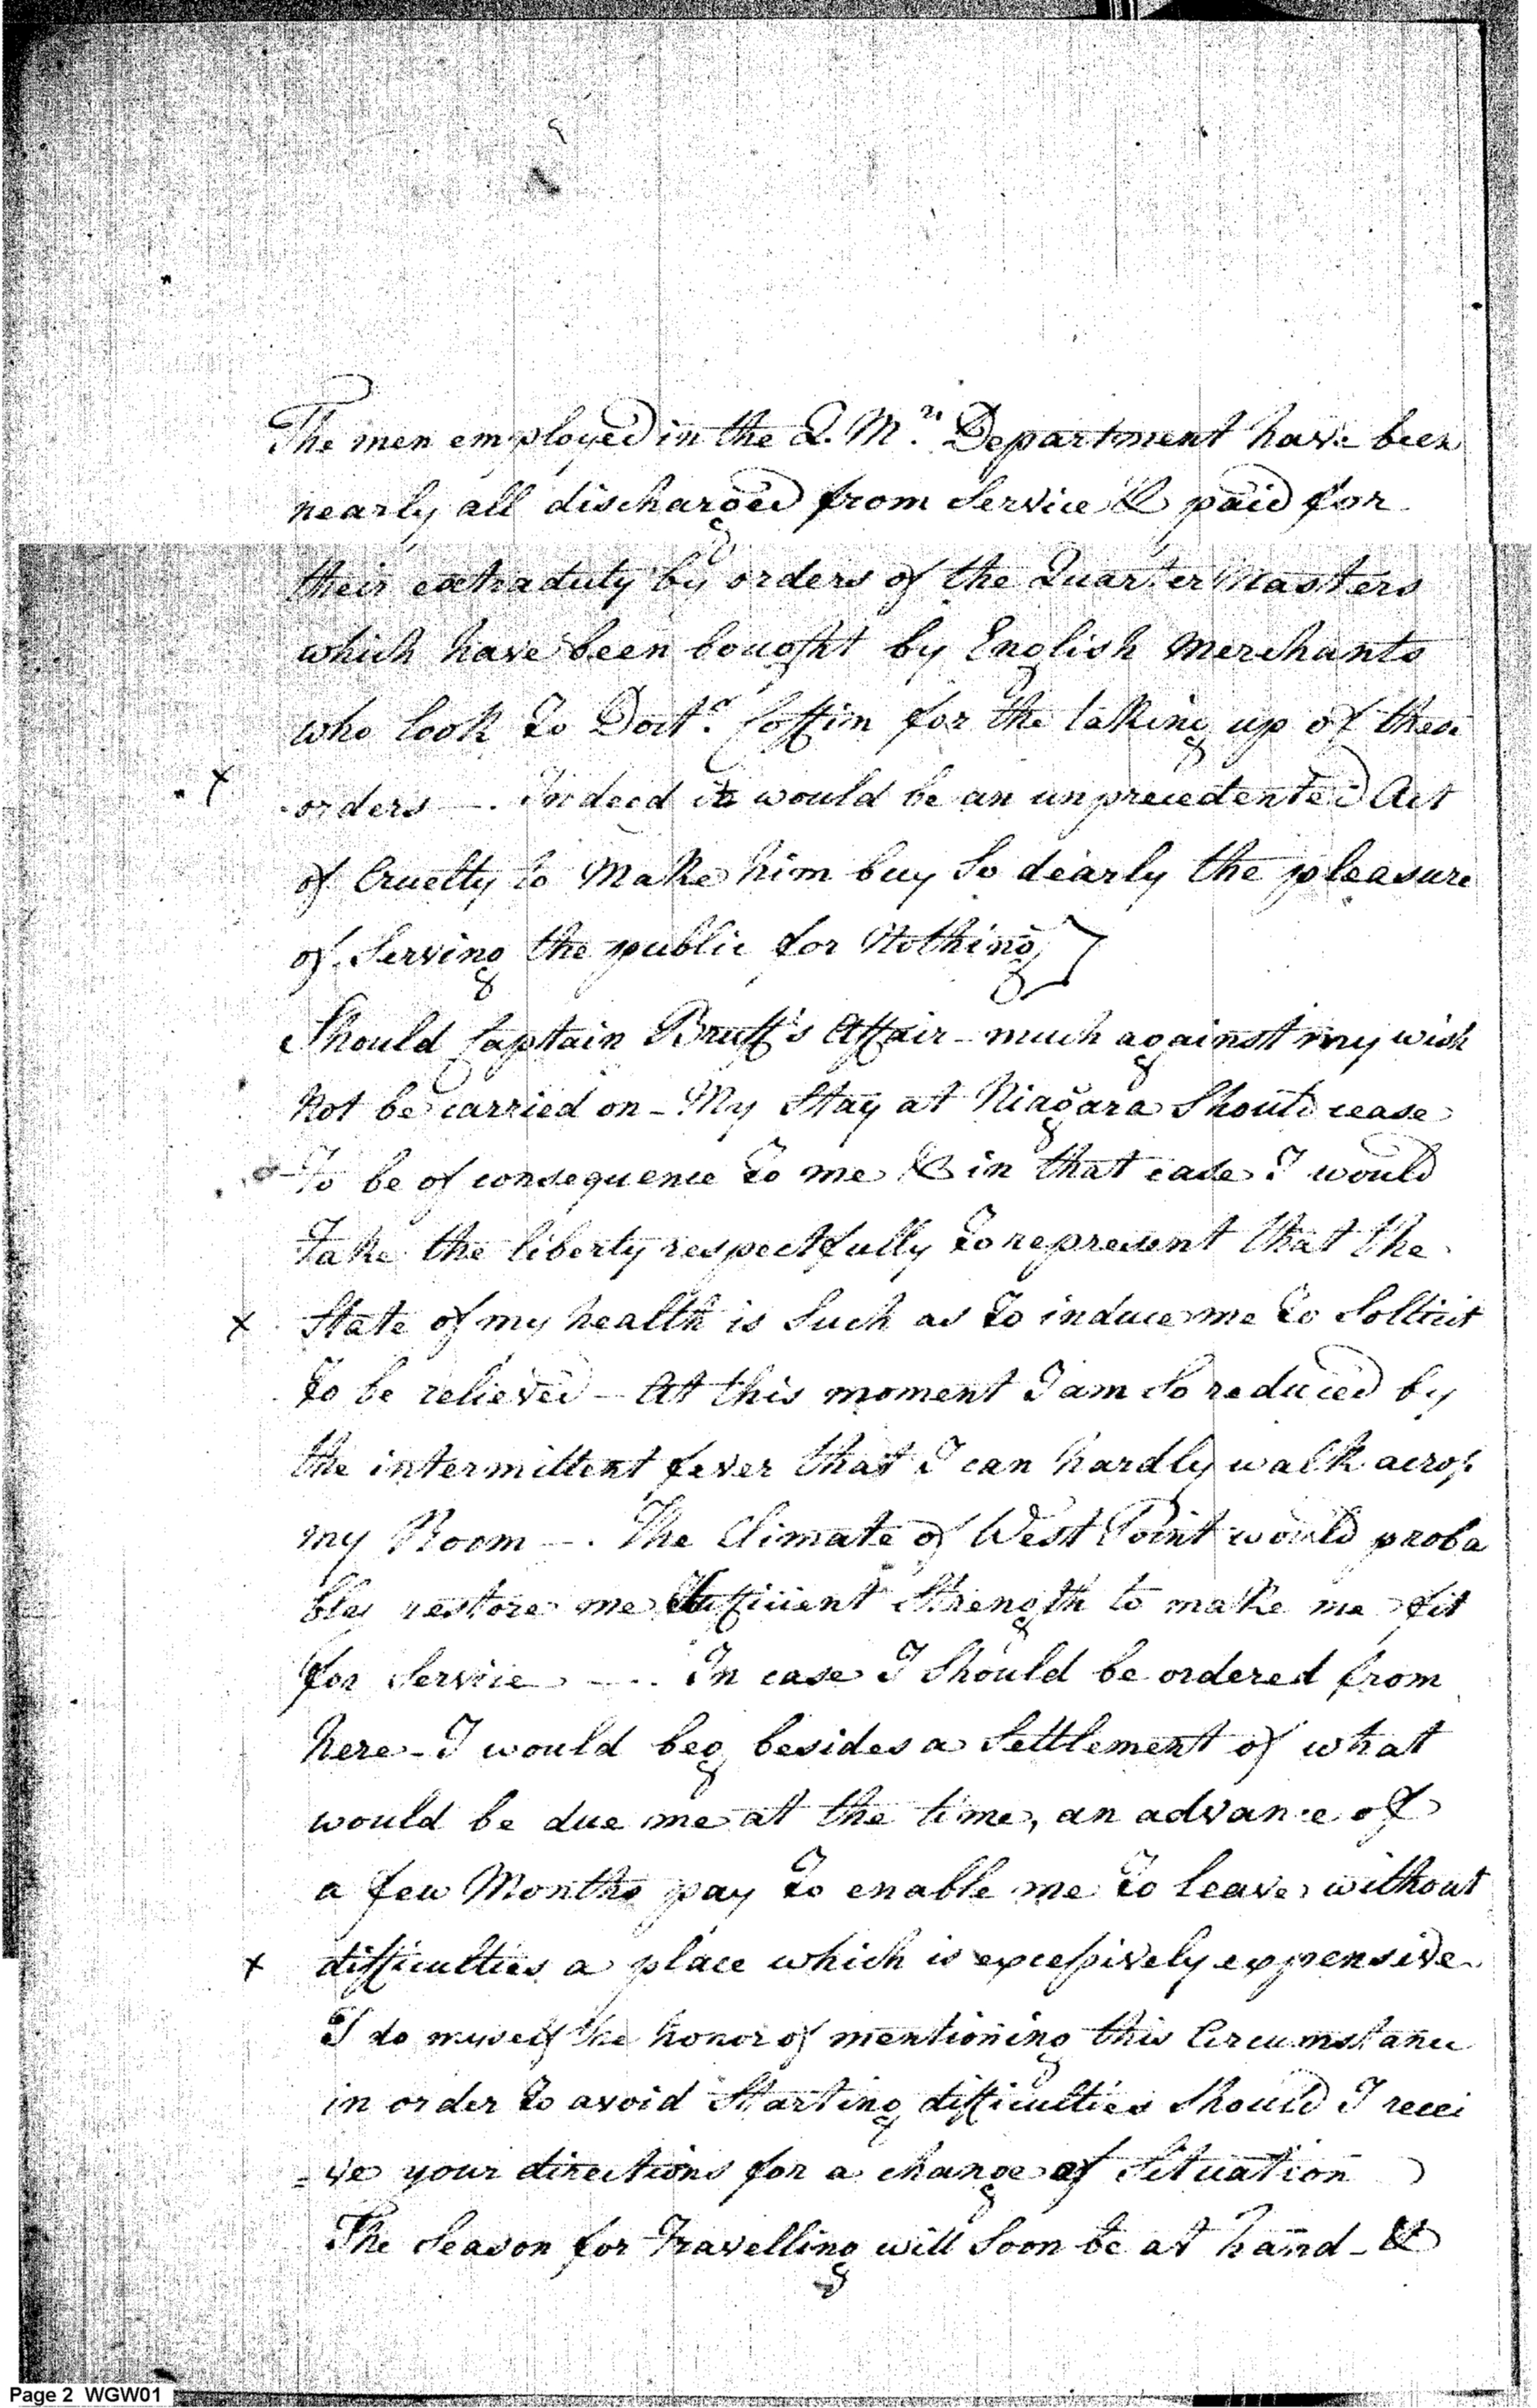 The men employed in the Q. M.rs Department have been
nearly all discharged from Service & paid for
their extra duty by orders of the Quarter Masters
which have been bought by English Merchants
who look to Doctr. Coffin for the taking up of these
x orders —. Indeed it would be an unprecedented Act
of Cruelty to Make him buy So dearly the pleasure
of Serving the public for Nothing]
Should Captain Bruff's Affair - much against my wish
Not be carried on - My Stay at Niagara Should cease
To be of consequence to me & in that case I would
Take the liberty respectfully to represent that the
x State of my health is Such as to induce me to Sollicit
to be relieved - At this moment I am So reduced by
the intermittent fever that I can hardly walk across
my Room —. The Climate of West Point would proba
bly restore me Sufficient Strength to make me fit
for Service —. In case I Should be ordered from
here - I would beg besides a Settlement of what
would be due me at the time, an advance of
a few Months pay to enable me to leave without
x difficulties a place which is excessively expensive.
I do myself the honor of mentioning this Circumstance
in order to avoid Starting difficulties Should I recei
=ve your directions for a change of Situation
The Season for Travelling will Soon be at hand - &
Page 2 WGW01